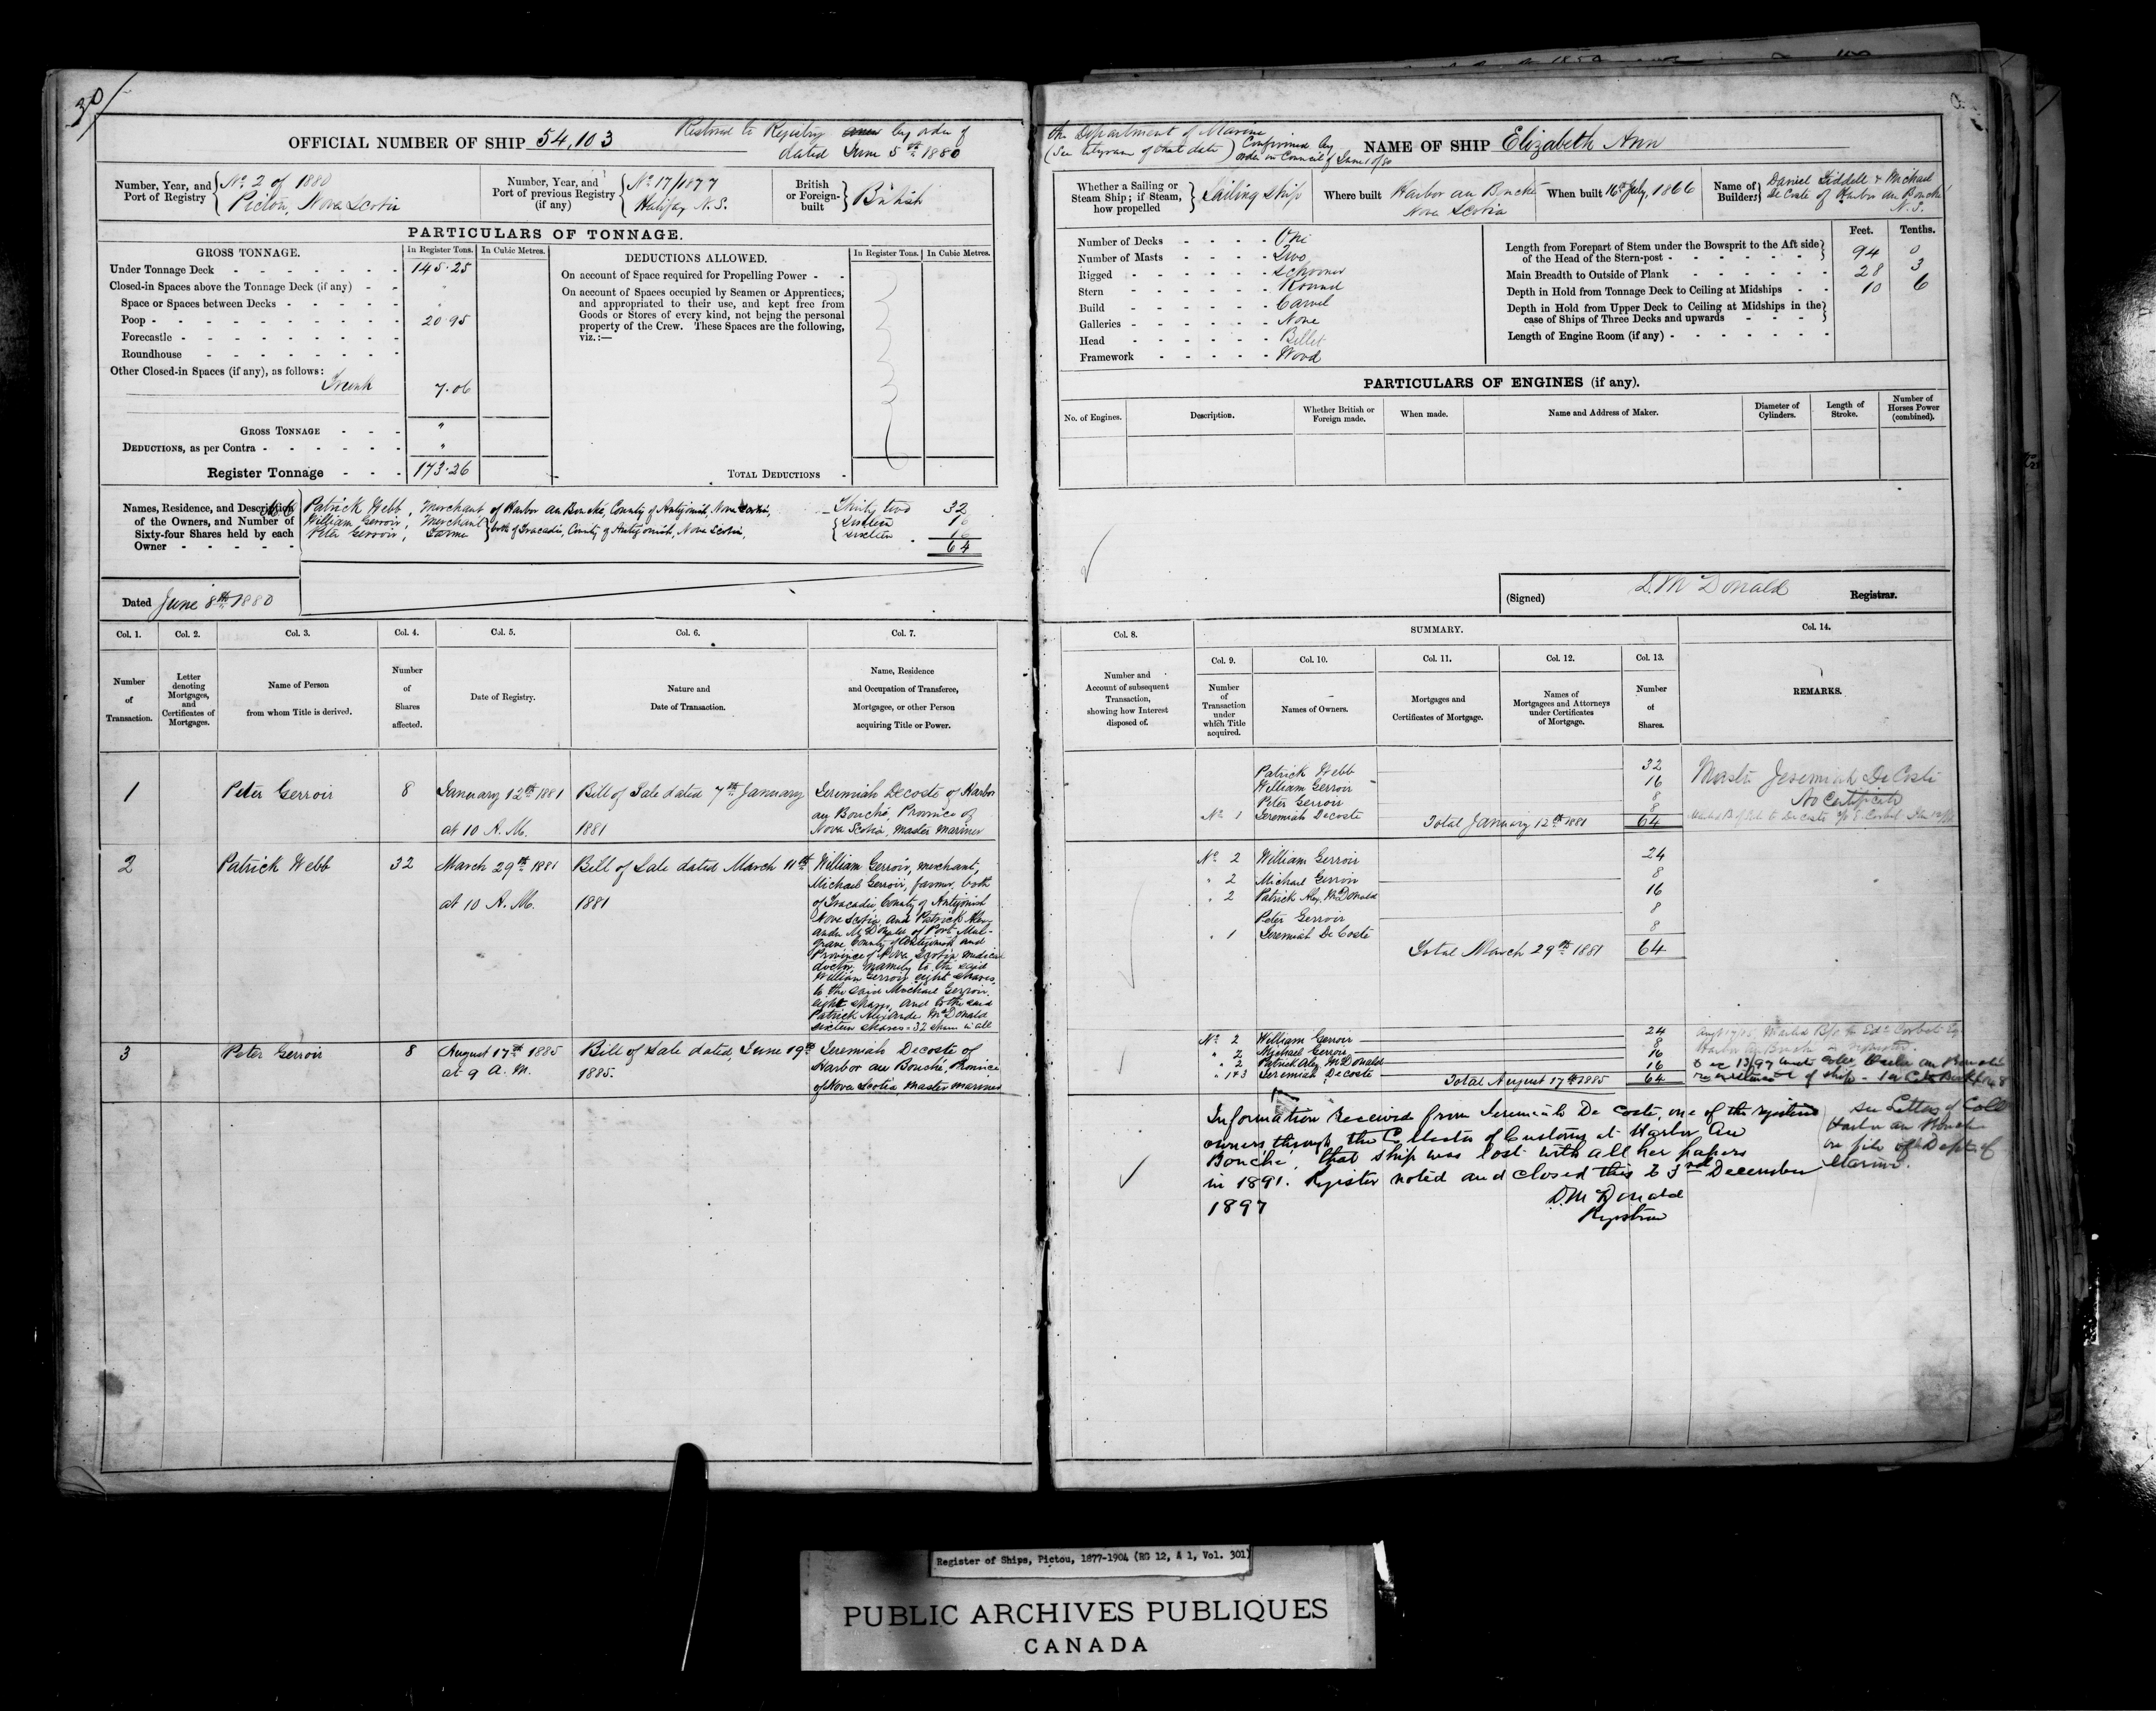 30
OFFICIAL NUMBER OF SHIP 54,103
Restored to Registry anew by order of
dated June 5th 1880
Number, Year, and Port of Registry
No. 2 of 1880
Pictou, Nova Scotia
Number, Year, and Port of previous Registry (if any)
No. 17/1877
Halifax N.S.
British or Foreign-built
British
PARTICULARS OF TONNAGE.
GROSS TONNAGE.
In Register Tons. In Cubic Metres.
Under Tonnage Deck 145.25
Closed-in Spaces above the Tonnage Deck (if any) "
Space or Spaces between Decks "
Poop 20.95
Forecastle
Roundhouse
Other Closed-in Spaces (if any), as follows:
Trunk 7.06
GROSS TONNAGE "
DEDUCTIONS, as per Contra "
Register Tonnage 173.26
DEDUCTIONS ALLOWED.
In Register Tons. In Cubic Metres.
On account of Space required for Propelling Power
On account of Spaces occupied by Seamen or Apprentices,
and appropriated to their use, and kept free from
Goods or Stores of every kind, not being the personal
property of the Crew. These Spaces are the following,
viz.:—
TOTAL DEDUCTIONS
Names, Residence, and Description
of the Owners, and Number of
Sixty-four Shares held by each
Owner
Patrick Webb, Merchant of Harbor au Bouché, County of Antigonish, Nova Scotia, Thirty two 32
William Gerroir, Merchant } both of Tracadie, County of Antigonish, Nova Scotia, Sixteen 16
Peter Gerroir, Farmer Sixteen 16
64
Dated June 8th 1880
Col. 1. Col. 2. Col. 3. Col. 4. Col. 5. Col. 6. Col. 7.
Number of Transaction.
Letter denoting Mortgages, and Certificates of Mortgages.
Name of Person from whom Title is derived.
Number of Shares affected.
Date of Registry.
Nature and Date of Transaction.
Name, Residence and Occupation of Transferee, Mortgagee, or other Person acquiring Title or Power.
1 Peter Gerroir 8 January 12th 1881 Bill of Sale dated 7th January Jeremiah Decoste of Harbor
au Bouché, Province of
at 10 A.M. 1881 Nova Scotia, Master Mariner
2 Patrick Webb 32 March 29th 1881 Bill of Sale dated March 11th William Gerroir, merchant,
Michael Gerroir, farmer, both
at 10 A.M. 1881 of Tracadie, County of Antigonish
Nova Scotia and Patrick Alex-
ander McDonald of Port Mul-
grave County of Antigonish and
Province of Nova Scotia medical
doctor, namely to the said
William Gerroir eight shares,
to the said Michael Gerroir
eight shares, and to the said
Patrick Alexander McDonald
sixteen shares = 32 shares in all
3 Peter Gerroir 8 August 17th 1885 Bill of Sale dated June 19th Jeremiah Decoste of
at 9 A.M. 1885. Harbor au Bouché, Province
of Nova Scotia, Master Mariner
the Department of Marine
(See telegram of that date) Confirmed by
order in Council of June 10/80
NAME OF SHIP Elizabeth Ann
Whether a Sailing or Steam Ship; if Steam, how propelled
Sailing Ship
Where built Harbor au Bouche
Nova Scotia
When built 16th July, 1866
Name of Builders
Daniel Liddell & Michael
DeCoste of Harbor au Bouche
N.S.
Number of Decks One
Number of Masts Two
Rigged Schooner
Stern Round
Build Carvel
Galleries None
Head Billet
Framework Wood
Feet. Tenths.
Length from Forepart of Stem under the Bowsprit to the Aft side
of the Head of the Stern-post 94 0
Main Breadth to Outside of Plank 28 3
Depth in Hold from Tonnage Deck to Ceiling at Midships 10 6
Depth in Hold from Upper Deck to Ceiling at Midships in the
case of Ships of Three Decks and upwards
Length of Engine Room (if any)
PARTICULARS OF ENGINES (if any).
No. of Engines. Description. Whether British or Foreign made. When made. Name and Address of Maker. Diameter of Cylinders. Length of Stroke. Number of Horses Power (combined).
(Signed) D. McDonald Registrar.
Col. 8. SUMMARY. Col. 14.
Col. 9. Col. 10. Col. 11. Col. 12. Col. 13.
Number and Account of subsequent Transaction, showing how Interest disposed of.
Number of Transaction under which Title acquired.
Names of Owners.
Mortgages and Certificates of Mortgage.
Names of Mortgagees and Attorneys under Certificates of Mortgage.
Number of Shares.
REMARKS.
Patrick Webb 32
William Gerroir 16
Peter Gerroir 8
No. 1 Jeremiah Decoste 8
Total January 12th 1881 64
Master Jeremiah DeCoste
No Certificate
No. 2 William Gerroir 24
" 2 Michael Gerroir 8
" 2 Patrick Alex. McDonald 16
Peter Gerroir 8
" 1 Jeremiah DeCoste 8
Total March 29th 1881 64
No. 2 William Gerroir 24
" 2 Michael Gerroir 8
" 2 Patrick Alex. McDonald 16
" 1+3 Jeremiah Decoste 16
Total August 17th 1885 64
Information received from Jeremiah De Coste, one of the registered
owners, through the Collector of Customs at Harbor Au
Bouche, that ship was lost with all her papers
in 1891. Register noted and closed this 23rd December
1897
D. McDonald
Registrar
see Letter of Coll
Harbor au Bouche
on file of Dept of
Marine.
Register of Ships, Pictou, 1877-1904 (RG 12, A 1, Vol. 301)
PUBLIC ARCHIVES PUBLIQUES
CANADA